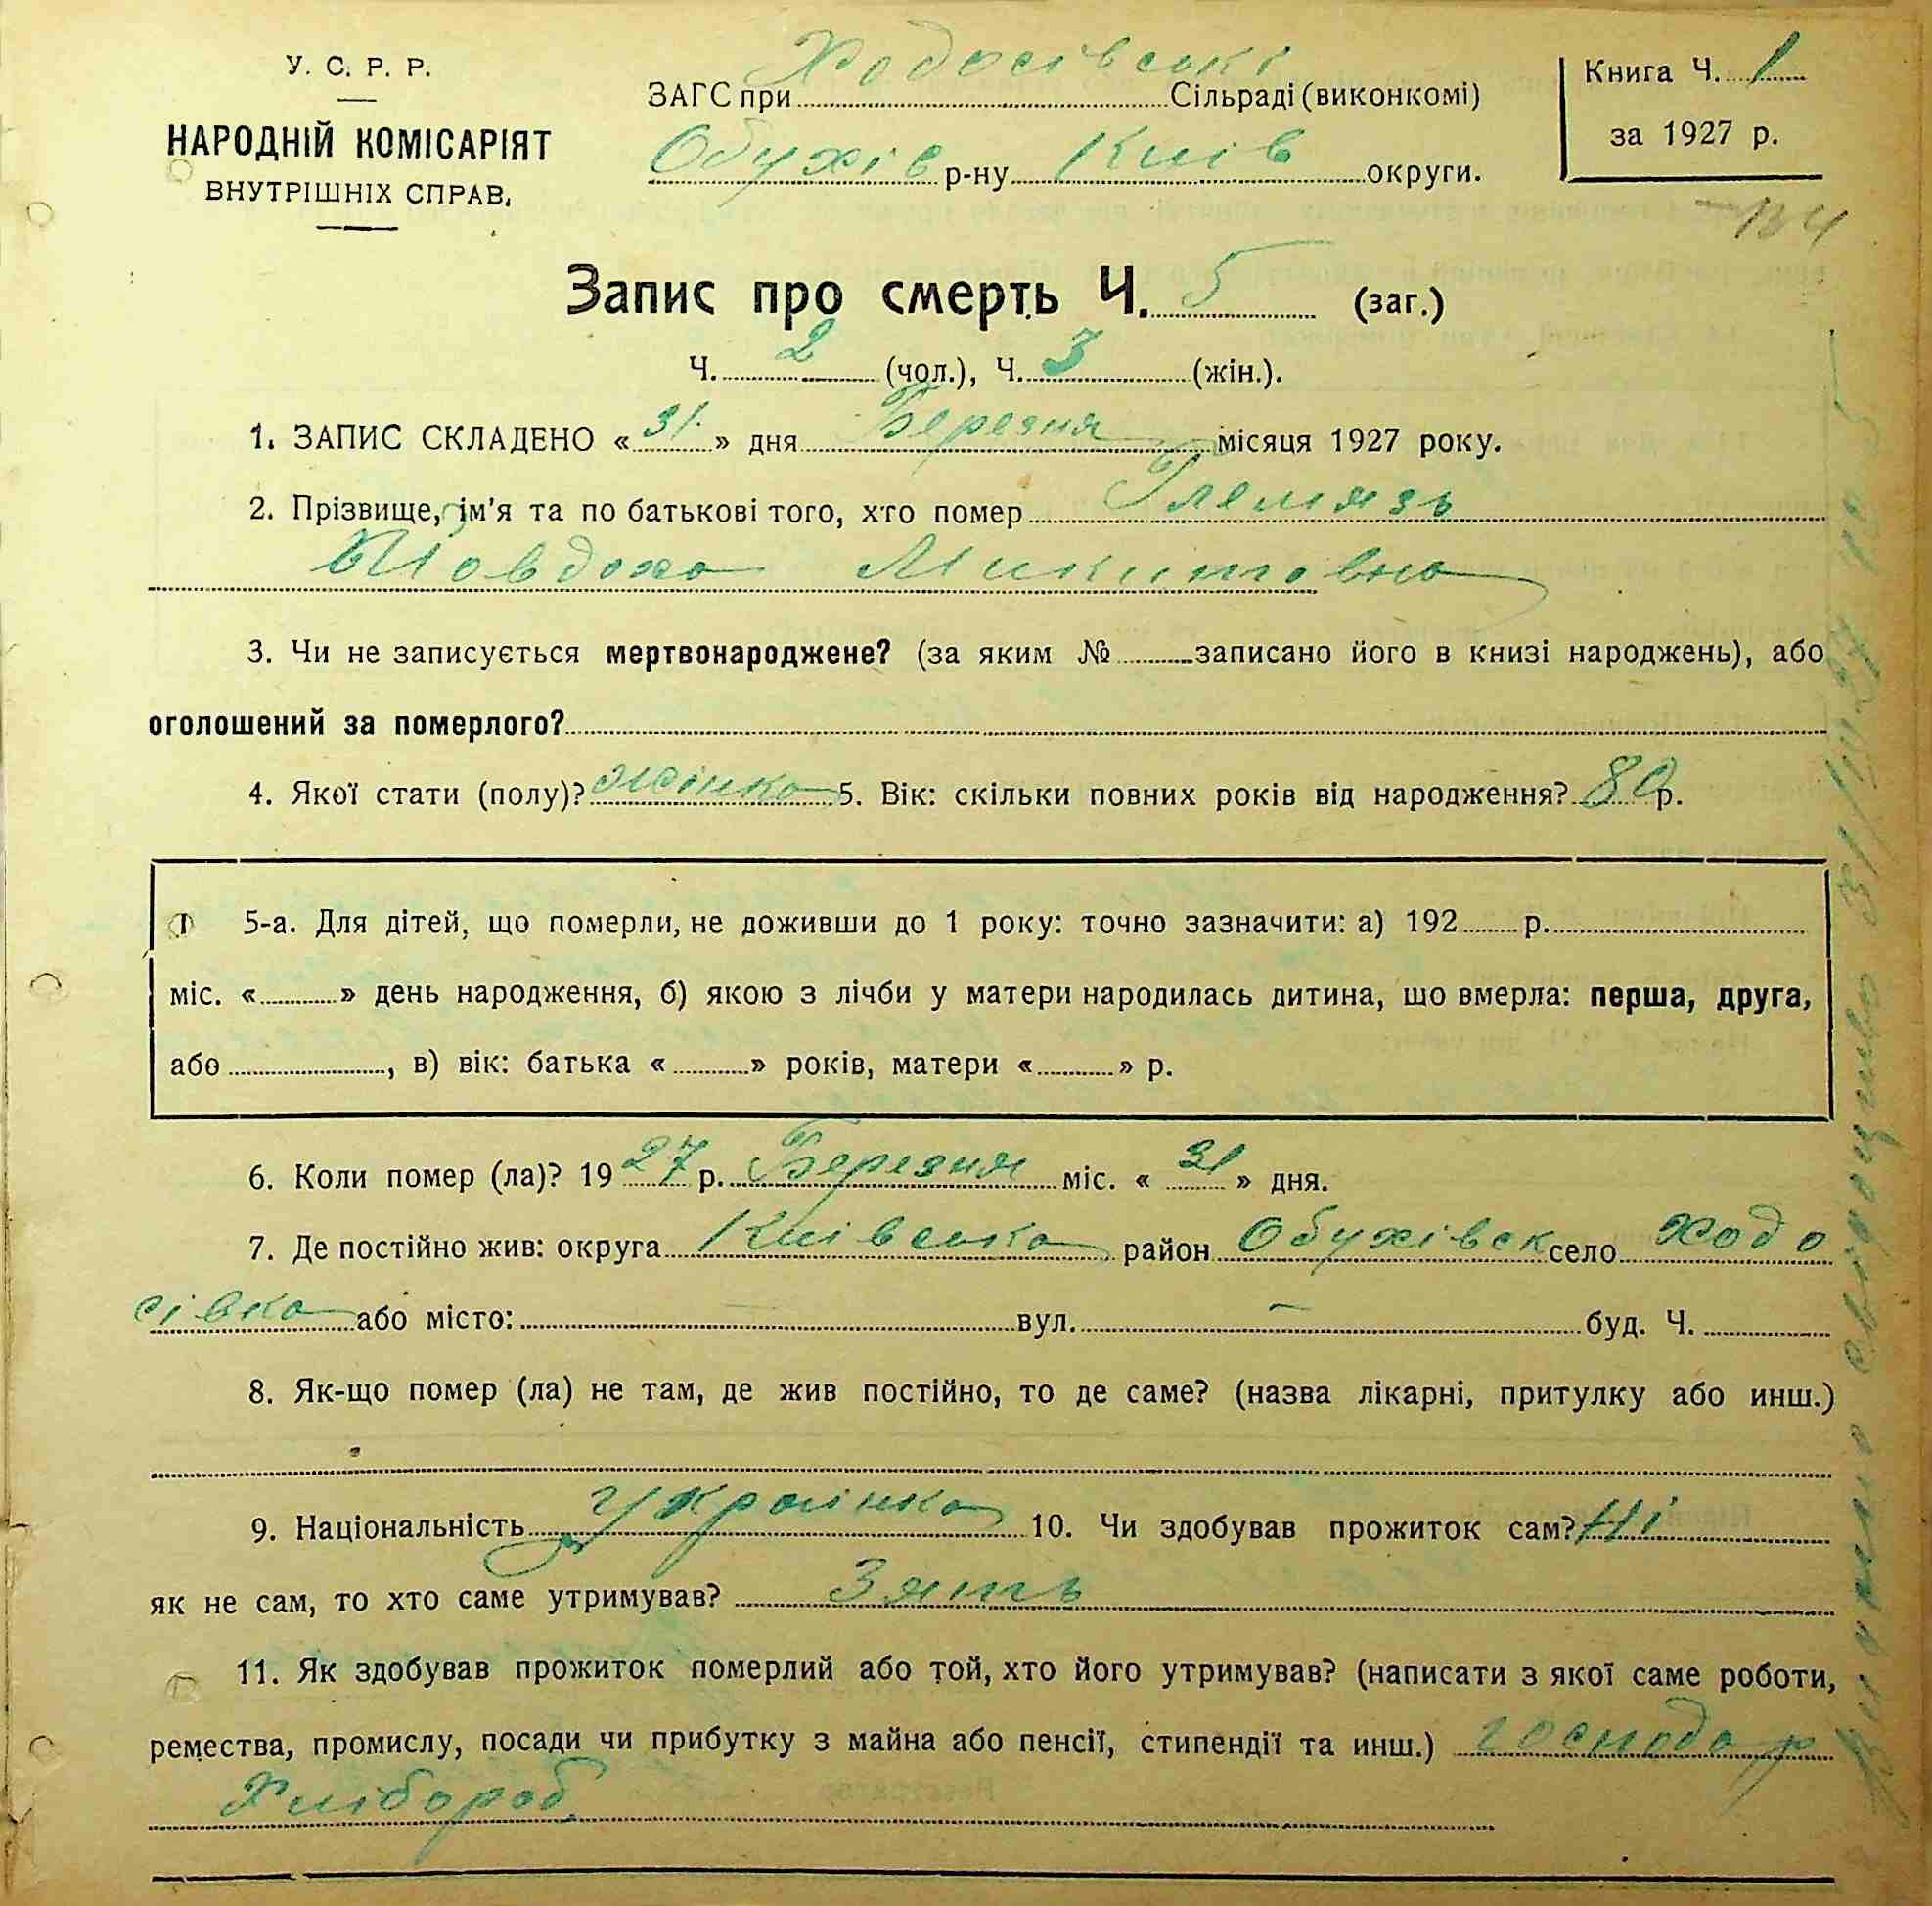 У. С. Р. Р.
НАРОДНІЙ КОМІСАРІЯТ
ВНУТРІШНІХ СПРАВ.
ЗАГС при Ходосівські Сільраді (виконкомі)
Обухів р-ну Київ округи.
Книга Ч. 1
за 1927 р.
Запис про смерть Ч. 5 (заг.)
Ч. 2 (чол.), Ч. 3 (жін.).
1. ЗАПИС СКЛАДЕНО « 31 » дня Березня місяця 1927 року.
2. Прізвище, ім'я та по батькові того, хто помер Глемязь
Йовдоха Микитовна
3. Чи не записується мертвонароджене? (за яким № записано його в книзі народжень), або
оголошений за померлого?
4. Якої стати (полу)? жінка 5. Вік: скільки повних років від народження? 80 р.
5-а. Для дітей, що померли, не доживши до 1 року: точно зазначити: а) 192 р.
міс. « » день народження, б) якою з лічби у матери народилась дитина, що вмерла: перша, друга,
або , в) вік: батька « » років, матери « » р.
6. Коли помер (ла)? 19 27 р. Березня міс. « 31 » дня.
7. Де постійно жив: округа Київська район Обухівск село Ходо
сівка або місто: — вул. — буд. Ч.
8. Як-що помер (ла) не там, де жив постійно, то де саме? (назва лікарні, притулку або инш.)
9. Національність Українка 10. Чи здобував прожиток сам? Ні
як не сам, то хто саме утримував? Зять
11. Як здобував прожиток померлий або той, хто його утримував? (написати з якої саме роботи,
ремества, промислу, посади чи прибутку з майна або пенсії, стипендії та инш.) господар
Хлібороб